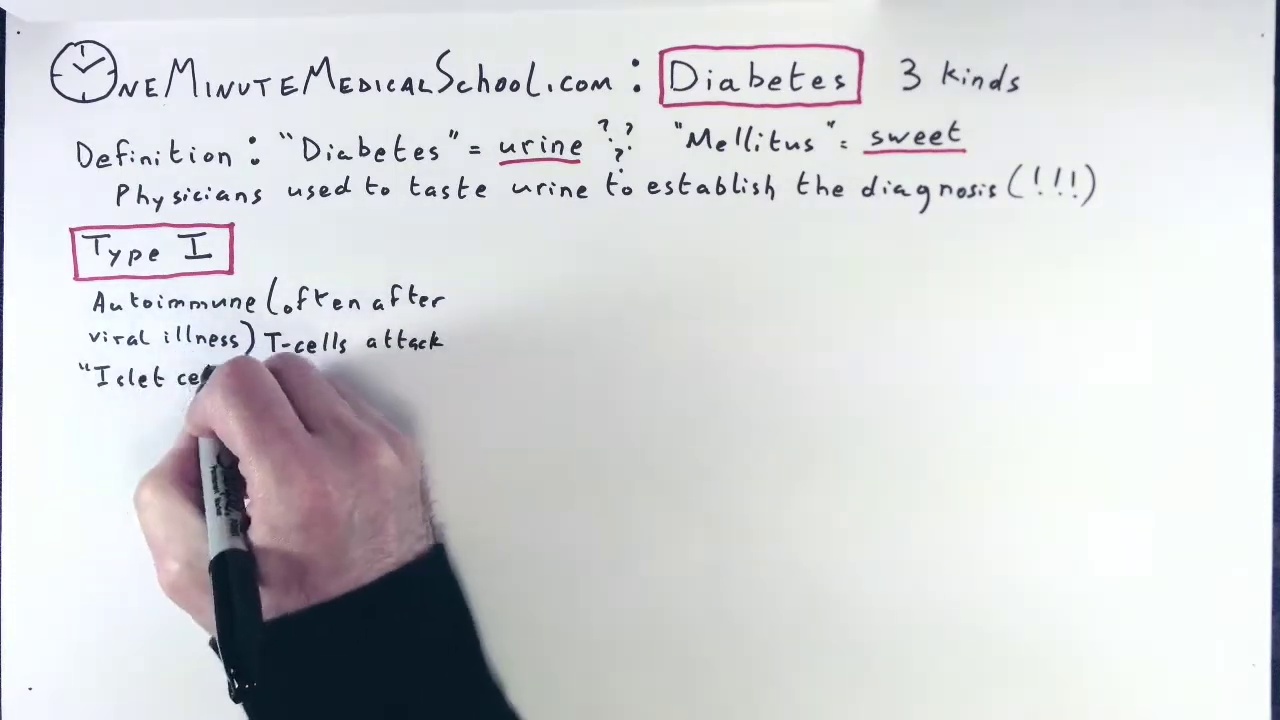 OneMinuteMedicalSchool.com : Diabetes 3 kinds
Definition : "Diabetes" = urine ??? "Mellitus" = sweet
Physicians used to taste urine to establish the diagnosis (!!!)
Type I
Autoimmune (often after
viral illness) T-cells attack
"Islet ce